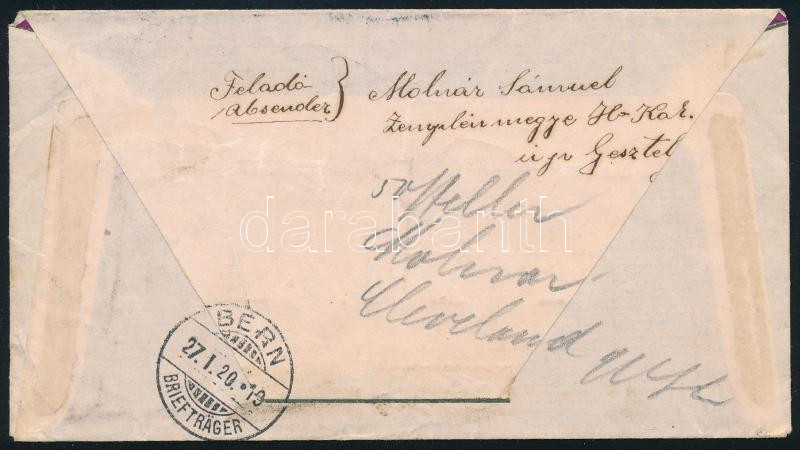 Feladó
Absender } Molnár Sámuel
Zemplén megye H-Kar.
u. p. Gesztely
Heller
Molnar
Cleveland
darabanth
BERN
27.I.20.-19
BRIEFTRÄGER